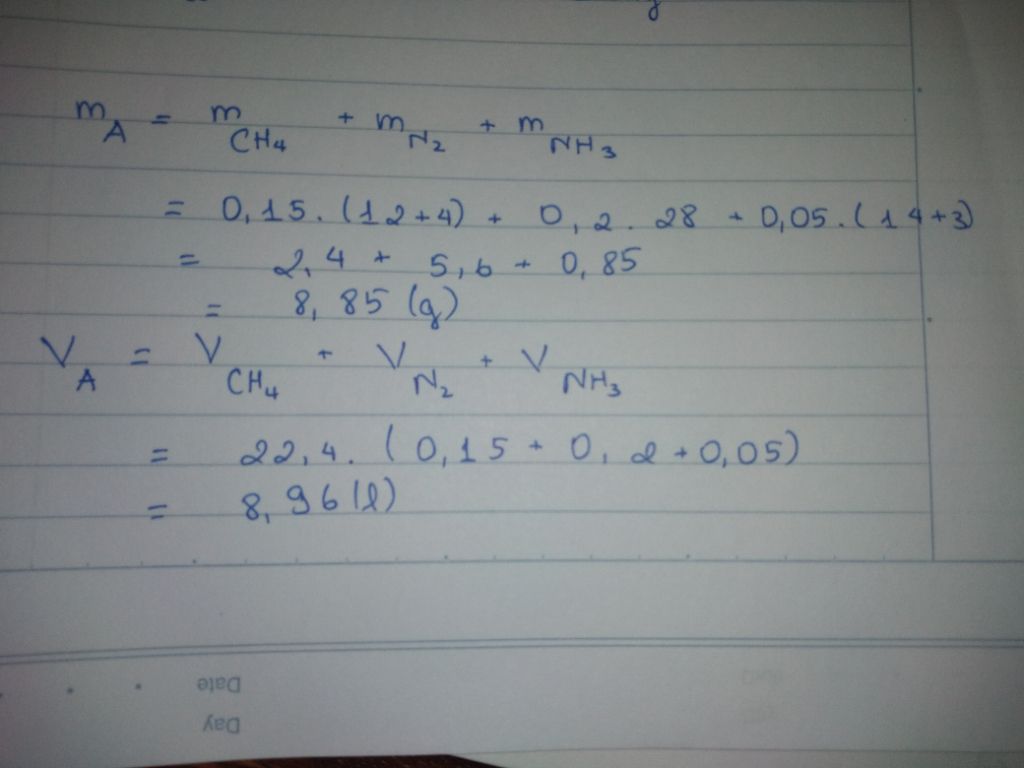 m_A = m_CH₄ + m_N₂ + m_NH₃
= 0,15.(12+4) + 0,2.28 + 0,05.(14+3)
= 2,4 + 5,6 + 0,85
= 8,85 (g)
V_A = V_CH₄ + V_N₂ + V_NH₃
= 22,4.(0,15 + 0,2 + 0,05)
= 8,96 (l)
Date
Day